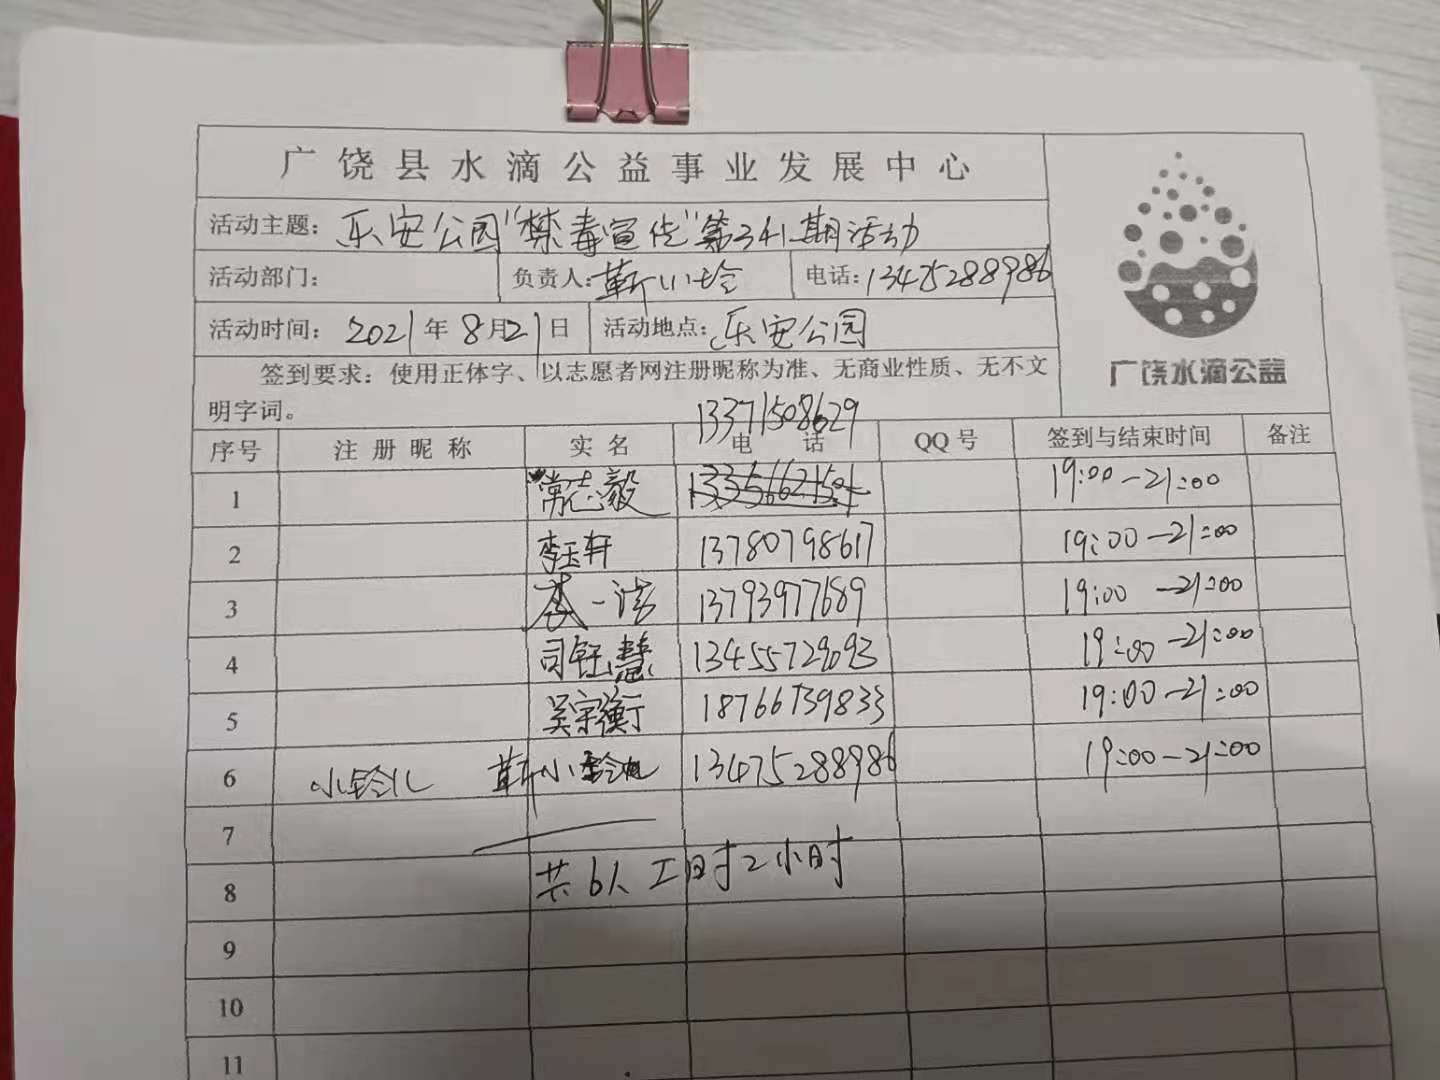 广饶县水滴公益事业发展中心
活动主题：乐安公园“禁毒宣传”第341期活动
活动部门： 负责人：靳小玲 电话：13475288986
活动时间：2021年8月21日 活动地点：乐安公园
签到要求：使用正体字、以志愿者网注册昵称为准、无商业性质、无不文
明字词。
广饶水滴公益
13371508629
序号 注册昵称 实名 电话 QQ号 签到与结束时间 备注
1 常志毅 19:00-21:00
2 李玉轩 13780798617 19:00-21:00
3 李一诺 13793977689 19:00-21:00
4 司钰慧 13455729093 19:00-21:00
5 吴宗衡 18766739833 19:00-21:00
6 小铃儿 靳小 13475288986 19:00-21:00
7
8 共6人工时2小时
9
10
11